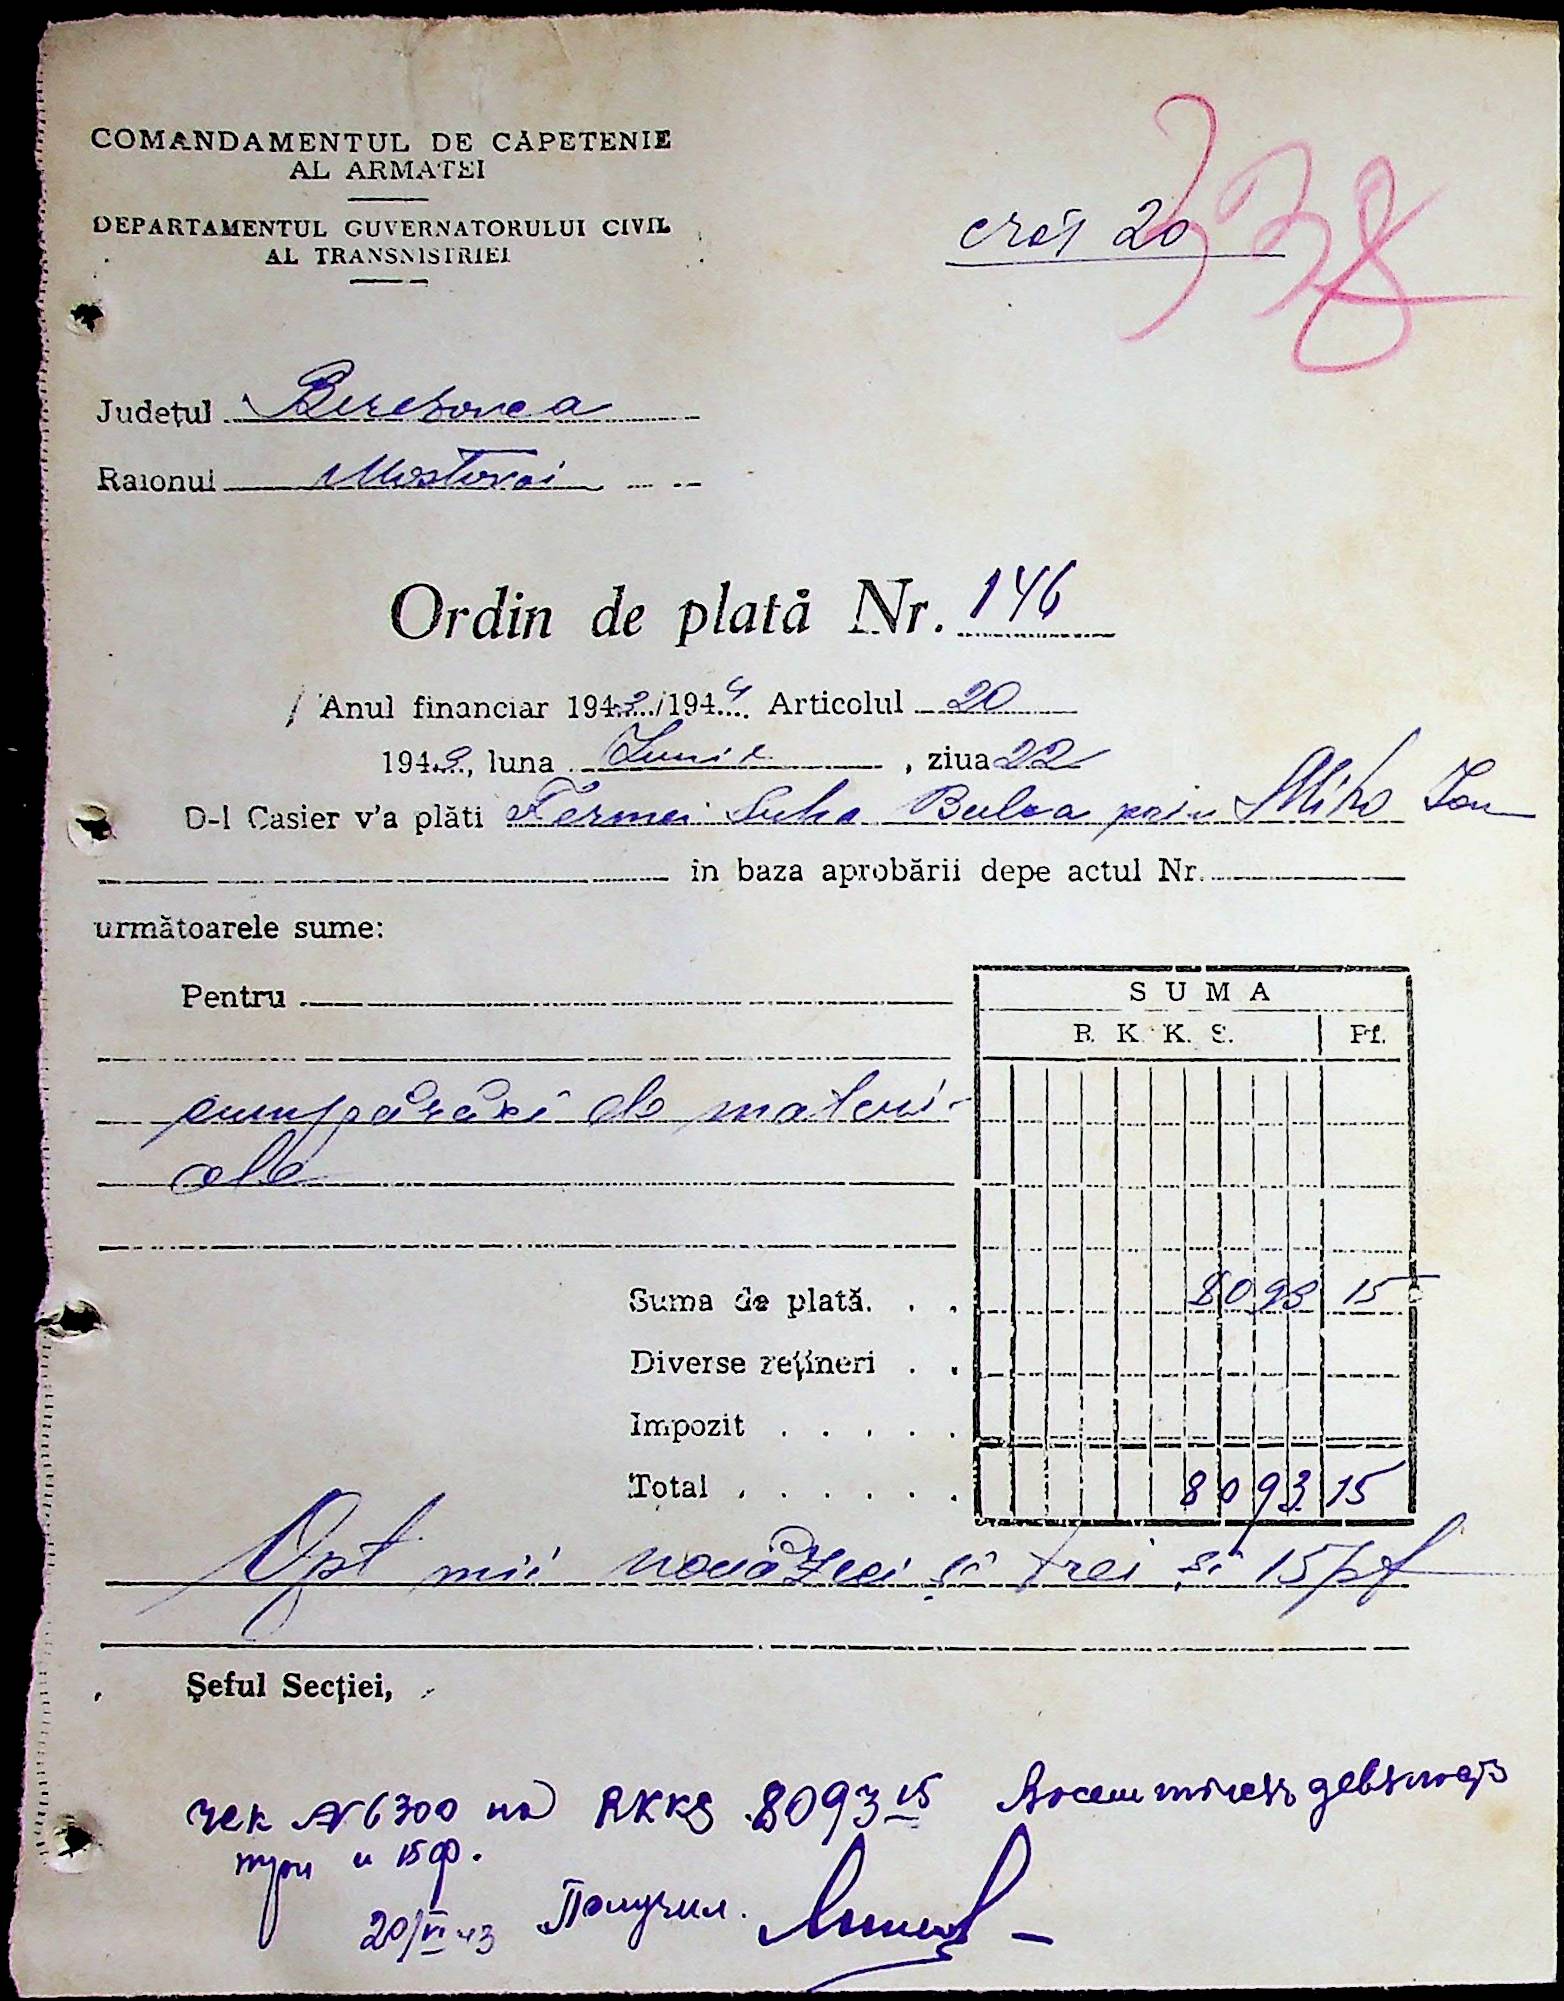 COMANDAMENTUL DE CĂPETENIE
AL ARMATEI
DEPARTAMENTUL GUVERNATORULUI CIVIL
AL TRANSNISTRIEI
338
20
Județul Beresovca
Raionul Mostovoi
Ordin de plată Nr. 146
Anul financiar 1943/1944 Articolul 20
1943, luna Iunie, ziua 22
D-l Casier v'a plăti Fermei Suha Balca prin Miho Ion
in baza aprobării depe actul Nr.
următoarele sume:
Pentru
SUMA
R. K. K. S. Pf.
cumpărări de materi-
ale
Suma de plată. . . 8093 15
Diverse rețineri . .
Impozit . . . . .
Total . . . . . . 8093 15
Opt mii nouăzeci și trei și 15 pf
Șeful Secției,
чек № 6300 на RKKS 8093 15 Восем тысяч девяносто
три и 15 ф.
20/VI 43 Получил.